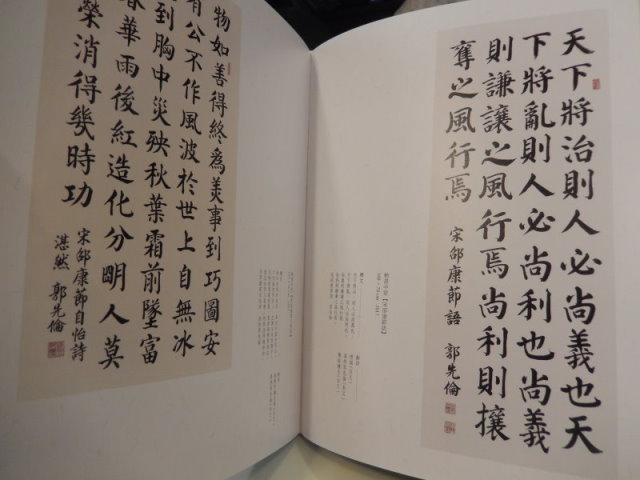 天下將治則人必尚義也天
下將亂則人必尚利也尚義
則謙讓之風行焉尚利則攘
奪之風行焉
宋邵康節語 郭先倫
釋文
物如善得終為美事到巧圖安
有公不作風波於世上自無冰
到胸中災殃秋葉霜前墜富
春華雨後紅造化分明人莫
榮消得幾時功
宋邵康節自怡詩
湛然 郭先倫